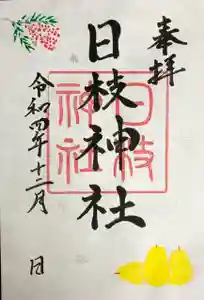 奉拝
日枝神社
日枝神社
令和四年十二月 日